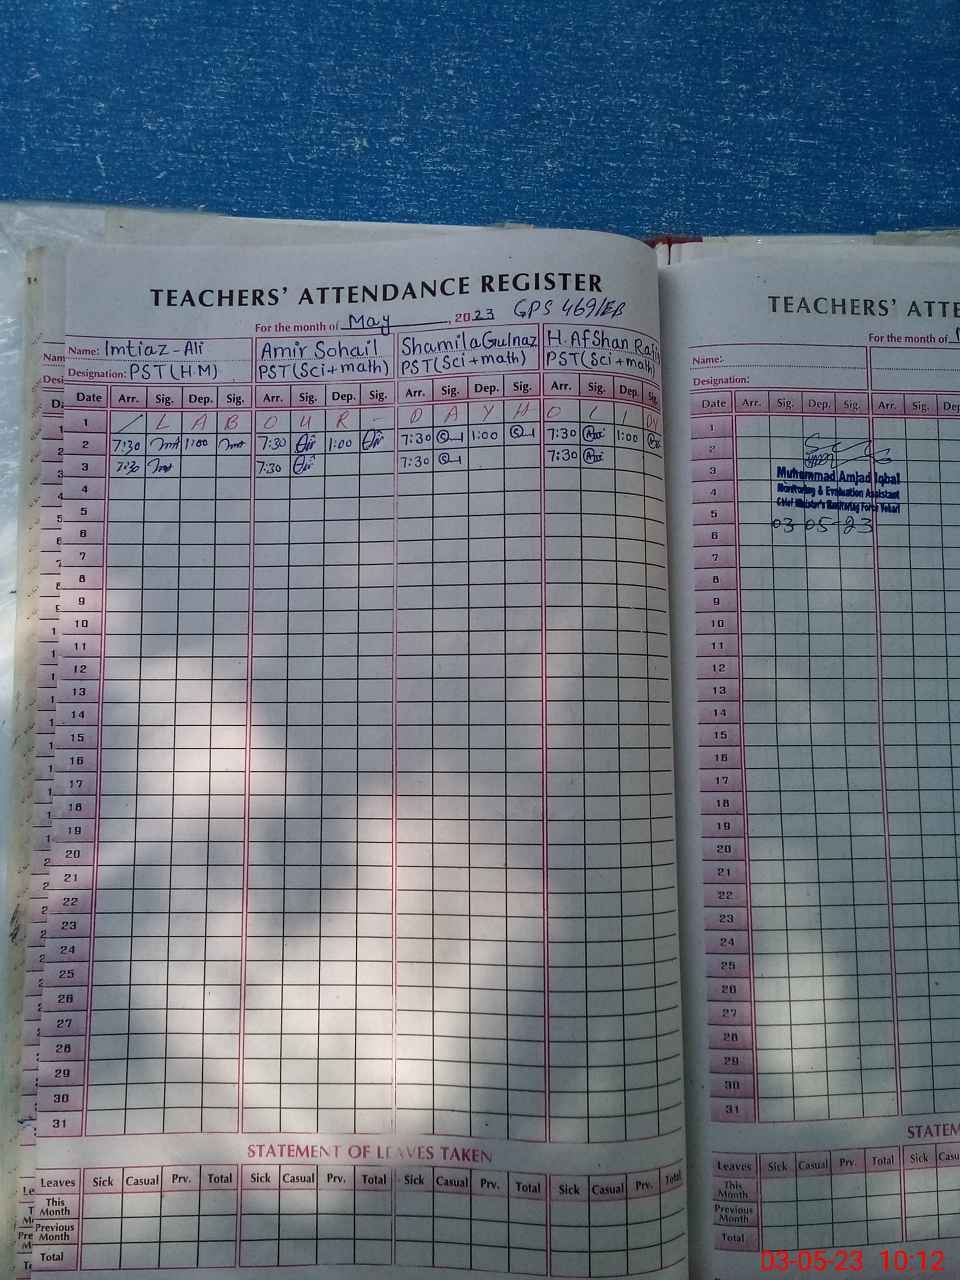 TEACHERS' ATTENDANCE REGISTER
GPS 469/EB
For the month of May, 2023
Name: Imtiaz-Ali Amir Sohail Shamila Gulnaz H. Afshan Rafiq
Designation: PST (HM) PST (Sci+math) PST (Sci+math) PST (Sci+math)
Date Arr. Sig. Dep. Sig. Arr. Sig. Dep. Sig. Arr. Sig. Dep. Sig. Arr. Sig. Dep. Sig.
1 L A B O U R - D A Y H O L I DY
2 7:30 1:00 7:30 1:00 7:30 1:00 7:30 1:00
3 7:30 7:30 7:30 7:30
4
5
6
7
8
9
10
11
12
13
14
15
16
17
18
19
20
21
22
23
24
25
26
27
28
29
30
31
STATEMENT OF LEAVES TAKEN
Leaves Sick Casual Prv. Total Sick Casual Prv. Total Sick Casual Prv. Total Sick Casual Prv. Total
This Month
Previous Month
Total
TEACHERS' ATTE
For the month of
Name:
Designation:
Date Arr. Sig. Dep. Sig. Arr. Sig. Dep.
1
2
3
4
5
6
7
8
9
10
11
12
13
14
15
16
17
18
19
20
21
22
23
24
25
26
27
28
29
30
31
Muhammad Amjad Iqbal
Monitoring & Evaluation Assistant
Chief Minister's Monitoring Force Vehari
03-05-23
STATEM
Leaves Sick Casual Prv. Total Sick Casu
This Month
Previous Month
Total
03-05-23 10:12